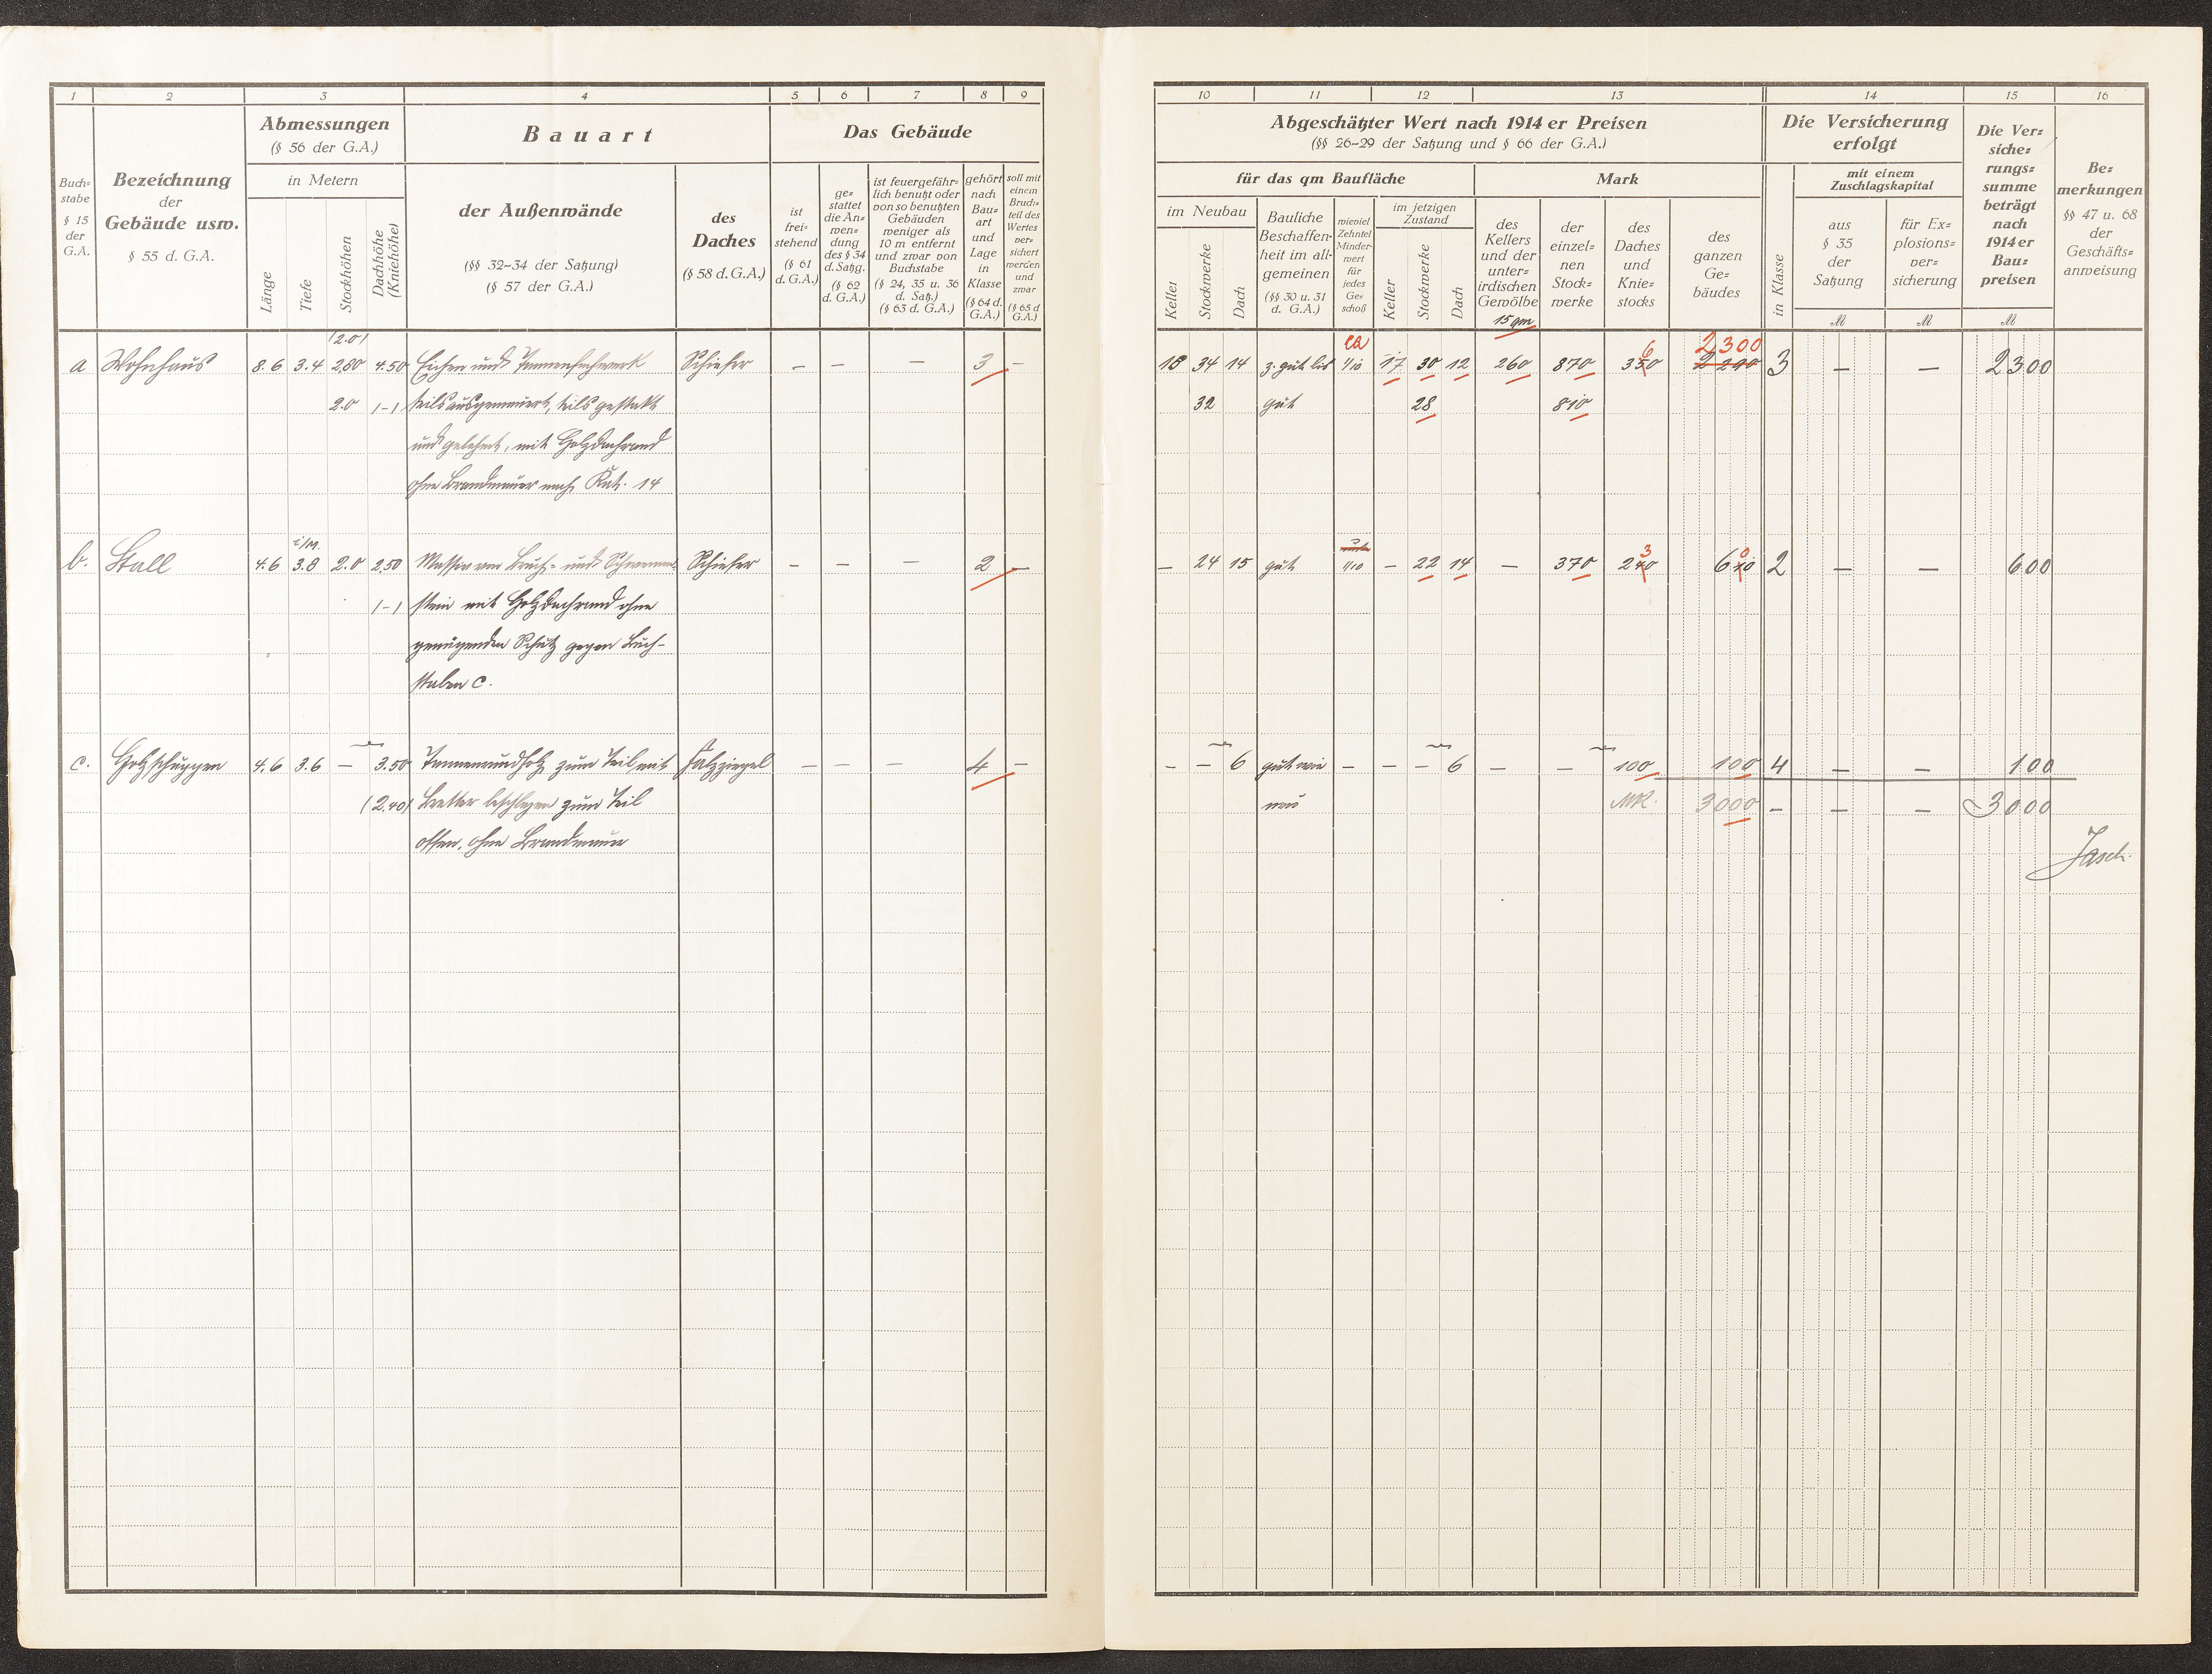 1 2 3 4 5 6 7 8 9
Buch=
stabe
§ 15
der
G.A.
Bezeichnung
der
Gebäude usw.
§ 55 d. G.A.
Abmessungen
(§ 56 der G.A.)
in Metern
Länge
Tiefe
Stockhöhen
Dachhöhe
(Kniehöhe)
Bauart
der Außenwände
(§§ 32-34 der Satzung)
(§ 57 der G.A.)
des
Daches
(§ 58 d. G.A.)
Das Gebäude
ist
frei=
stehend
(§ 61
d. G.A.)
ge=
stattet
die An=
wen=
dung
des § 34
d. Satzg.
(§ 62
d. G.A.)
ist feuergefähr=
lich benutzt oder
von so benutzten
Gebäuden
weniger als
10 m entfernt
und zwar von
Buchstabe
(§ 24, 35 u. 36
d. Satz.)
(§ 63 d. G.A.)
gehört
nach
Bau=
art
und
Lage
in
Klasse
(§ 64 d.
G.A.)
soll mit
einem
Bruch=
teil des
Wertes
ver=
sichert
werden
und
zwar
(§ 65 d
G.A.)
(2.0)
a Wohnhaus 8.6 3.4 2,80 4.50 Eichen und Tannenfachwerk Schiefer – – – 3 –
2.0 (-) teils ausgemauert, teils gestakt
und gelehmt, mit Holzdachrand
ohne Brandmauer nach Kat. 14
i/M.
b. Stall 4.6 3.8 2.0 2,50 Massiv von Bruch= und Schwemm= Schiefer – – – 2 –
(-) stein mit Holzdachrand ohne
genügenden Schutz gegen Buch-
staben c.
c. Holzschuppen 4.6 3.6 – 3.50 Tannenrundholz zum Teil mit Falzziegel – – – 4 –
(2.40) Bretter beschlagen zum Teil
offen, ohne Brandmauer
10 11 12 13 14 15 16
Abgeschätzter Wert nach 1914 er Preisen
(§§ 26-29 der Satzung und § 66 der G.A.)
für das qm Baufläche
Mark
im Neubau
Keller
Stockwerke
Dach
Bauliche
Beschaffen=
heit im all=
gemeinen
(§§ 30 u. 31
d. G.A.)
wieviel
Zehntel
Minder=
wert
für
jedes
Ge=
schoß
im jetzigen
Zustand
Keller
Stockwerke
Dach
des
Kellers
und der
unter=
irdischen
Gewölbe
15 qm
der
einzel=
nen
Stock=
werke
des
Daches
und
Knie=
stocks
des
ganzen
Ge=
bäudes
Die Versicherung
erfolgt
in Klasse
mit einem
Zuschlagskapital
aus
§ 35
der
Satzung
für Ex=
plosions=
ver=
sicherung
M M M
Die Ver=
siche=
rungs=
summe
beträgt
nach
1914 er
Bau=
preisen
Be=
merkungen
§§ 47 u. 68
der
Geschäfts=
anweisung
ca 6 2300
18 34 14 z. gut bis 1/10 17 30 12 260 870 350 2290 3 – – 2300
32 gut 28 810
3 0
– 24 15 gut 1/10 – 22 14 – 370 240 610 2 – – 600
– – 6 gut wie – – – 6 – – 100 100 4 – – 100
neu Mk. 3000 – – – 3000
Jasch.